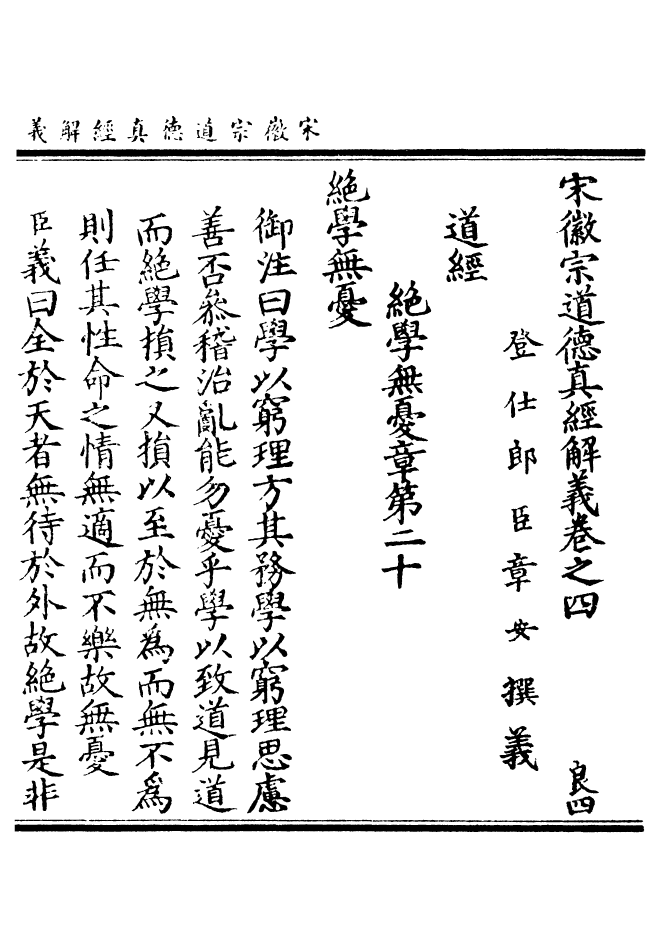 宋徽宗道德真經解義
宋徽宗道德真經解義卷之四　良四
登仕郎臣章安撰義
道經
絕學無憂章第二十
絕學無憂
御注曰學以窮理方其務學以窮理思慮
善否叅稽治亂能勿憂乎學以致道見道
而絕學損之又損以至於無為而無不為
則任其性命之情無適而不樂故無憂
臣義曰全於天者無待於外故絕學是非